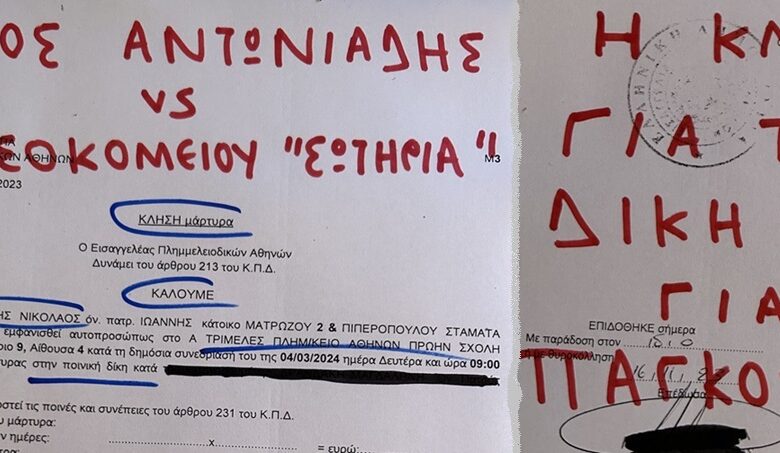 ΟΣ ΑΝΤΩΝΙΑΔΗΣ
VS
ΣΟΚΟΜΕΙΟΥ "ΣΩΤΗΡΙΑ"!
ΚΩΝ ΑΘΗΝΩΝ
Μ3
2023
ΚΛΗΣΗ μάρτυρα
Ο Εισαγγελέας Πλημμελειοδικών Αθηνών
Δυνάμει του άρθρου 213 του Κ.Π.Δ.
ΚΑΛΟΥΜΕ
ΗΣ ΝΙΚΟΛΑΟΣ όν. πατρ. ΙΩΑΝΝΗΣ κάτοικο ΜΑΤΡΩΖΟΥ 2 & ΠΙΠΕΡΟΠΟΥΛΟΥ ΣΤΑΜΑΤΑ
εμφανισθεί αυτοπροσώπως στο Α ΤΡΙΜΕΛΕΣ ΠΛΗΜ/ΚΕΙΟ ΑΘΗΝΩΝ ΠΡΩΗΝ ΣΧΟΛΗ
ριο 9, Αίθουσα 4 κατά τη δημόσια συνεδρίασή του της 04/03/2024 ημέρα Δευτέρα και ώρα 09:00
υρας στην ποινική δίκη κατά
οστεί τις ποινές και συνέπειες του άρθρου 231 του Κ.Π.Δ.
ου μάρτυρα:
ν ημέρες: ........................x........................ = ευρώ:
Η ΚΛ
ΕΛΛΗΝΙΚΗ
ΓΙΑ Τ
ΔΙΚΗ
ΓΙΑ
ΕΠΙΔΟΘΗΚΕ σήμερα
Με παράδοση στον
ή με θυροκόλληση
ΠΑΓΚΟ
Επέδωσα